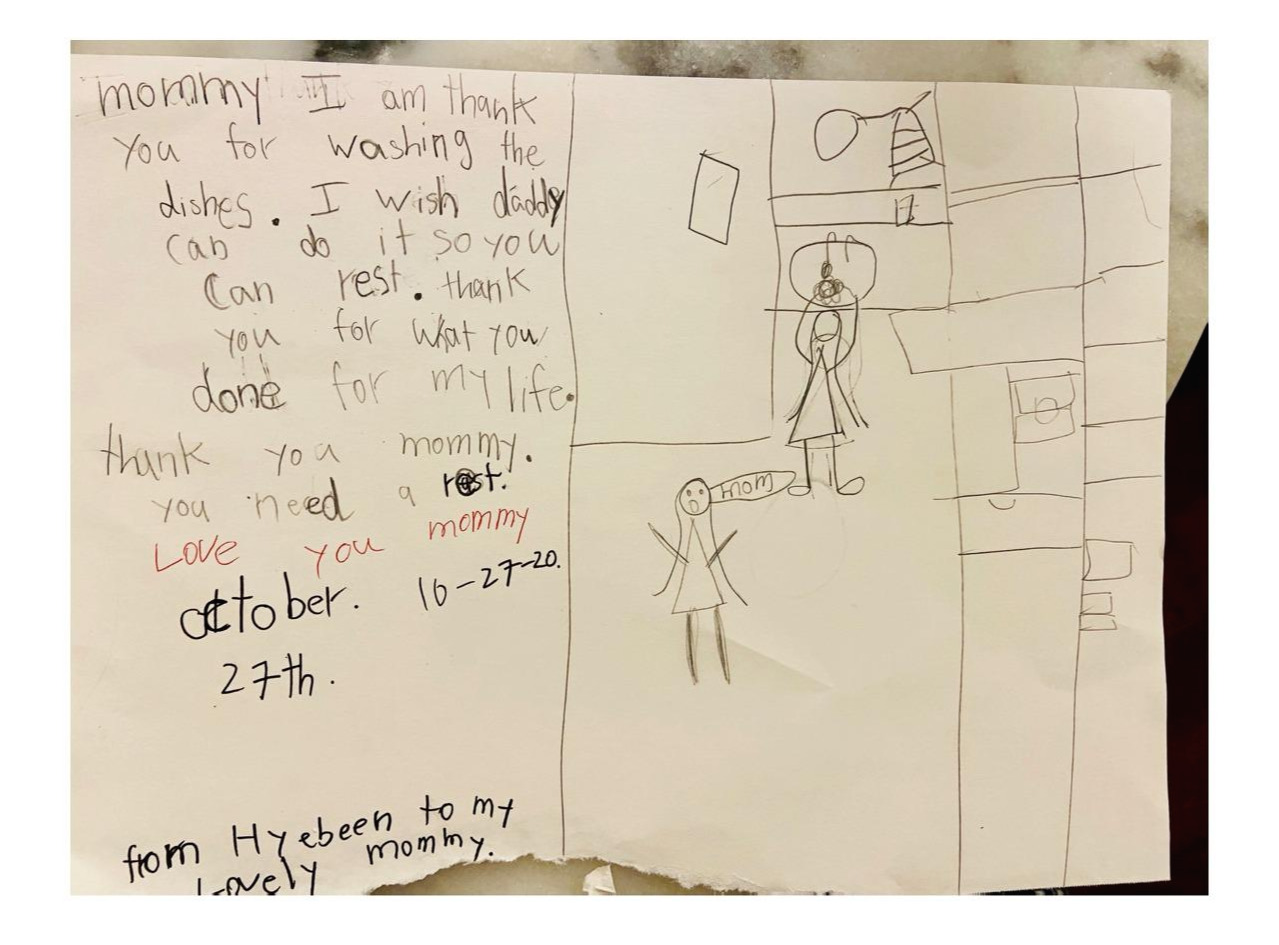 mommy I am thank
you for washing the
dishes. I wish daddy
can do it so you
Can rest. thank
you for what you
done for my life.
thank you mommy.
you need a rest.
Love you mommy
october. 10-27-20.
27th.
from Hyebeen to my
Lovely mommy.
mom